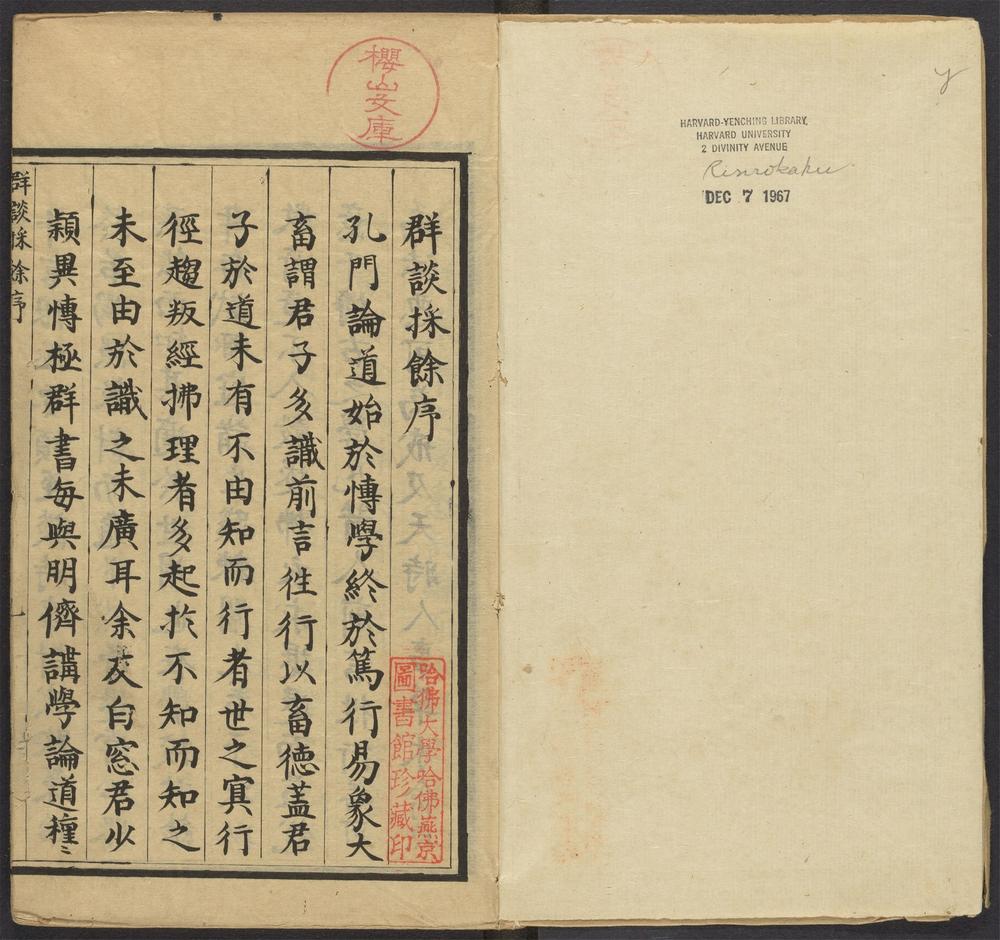 HARVARD-YENCHING LIBRARY,
HARVARD UNIVERSITY
2 DIVINITY AVENUE
Rinrokaku
DEC 7 1967
y
櫻山文庫
群談採餘序
哈佛大學哈佛燕京
圖書館珍藏印
孔門論道始於愽學終於篤行易象大
畜謂君子多識前言徃行以畜徳蓋君
子於道未有不由知而行者世之寘行
徑趨叛經拂理者多起扵不知而知之
未至由於識之未廣耳余友白窓君少
穎異愽極群書每與明儕講學論道種〻
群談採餘序